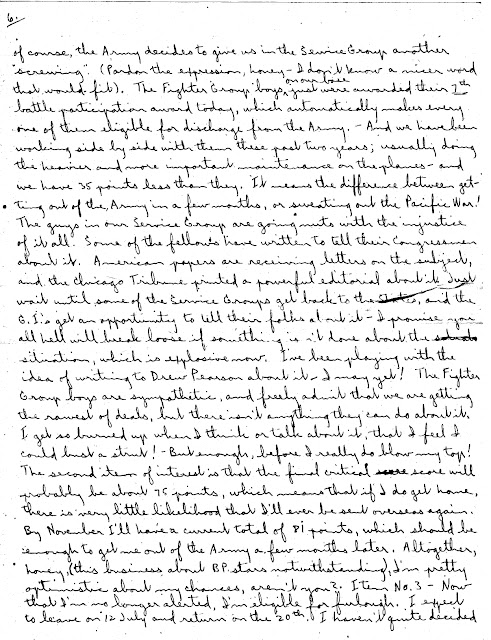 6.
of course, the Army decides to give us in the Service Group another
"screwing". (Pardon the expression, honey - I don't know a nicer word
that would fit). The Fighter Group boys on our base just were awarded their 7th
battle participation award today, which automatically makes every
one of them eligible for discharge from the Army. - And we have been
working side by side with them these past two years; usually doing
the heavier and more important maintenance on the planes - and
we have 35 points less than they. It means the difference between get-
ting out of the Army in a few months, or sweating out the Pacific War!
The guys in our Service Group are going nuts with the injustice
of it all. Some of the fellows have written to tell their Congressmen
about it. American papers are receiving letters on the subject,
and the Chicago Tribune printed a powerful editorial about it. Just
wait until some of the Service Groups get back to the States, and the
G.I.s get an opportunity to tell their folks about it - I promise you
all hell will break loose if something isn't done about the
situation, which is explosive now. I've been playing with the
idea of writing to Drew Pearson about it - I may yet! The Fighter
Group boys are sympathetic, and freely admit that we are getting
the rawest of deals, but there isn't anything they can do about it.
I get so burned up when I think or talk about it, that I feel I
could bust a strut! - But enough, before I really do blow my top!
The second item of interest is that the final critical score will
probably be about 75 points, which means that if I do get home,
there is very little likelihood that I'll ever be sent overseas again.
By November I'll have a current total of 81 points, which should be
enough to get me out of the Army a few months later. Altogether,
honey, (this business about B.P. stars notwithstanding), I'm pretty
optimistic about my chances, aren't you? Item No. 3 - Now
that I'm no longer alerted, I'm eligible for furlough. I expect
to leave on 12 July and return on the 20th. I haven't quite decided